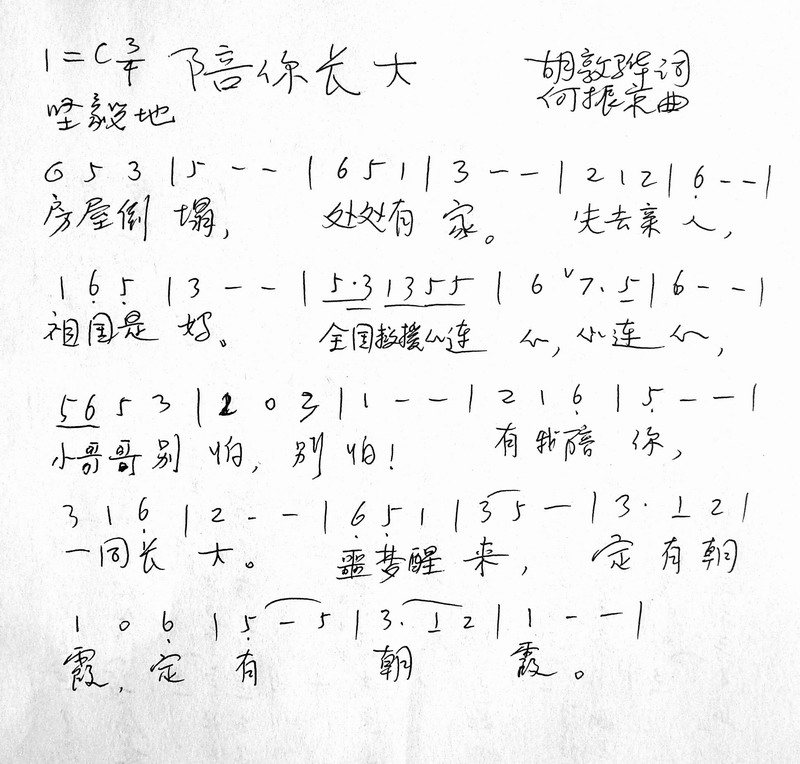 1=C 3/4 陪你长大 胡敦骅词
坚毅地 何振京曲
6 5 3 | 5 - - | 6 5 1 | 3 - - | 2 1 2 | 6 - - |
房屋倒塌， 处处有家。 失去亲人，
1 6 5 | 3 - - | 5·3 1355 | 6 ˇ7·5 | 6 - - |
祖国是妈。 全国救援心连心，心连心，
56 5 3 | 2 0 3 | 1 - - | 2 1 6 | 5 - - |
小哥哥别怕，别怕！ 有我陪你，
3 1 6 | 2 - - | 6 5 1 | 3 5 - | 3· 1 2 |
一同长大。 噩梦醒来， 定有朝
1 0 6 | 5 - 5 | 3· 1 2 | 1 - - |
霞，定有朝霞。